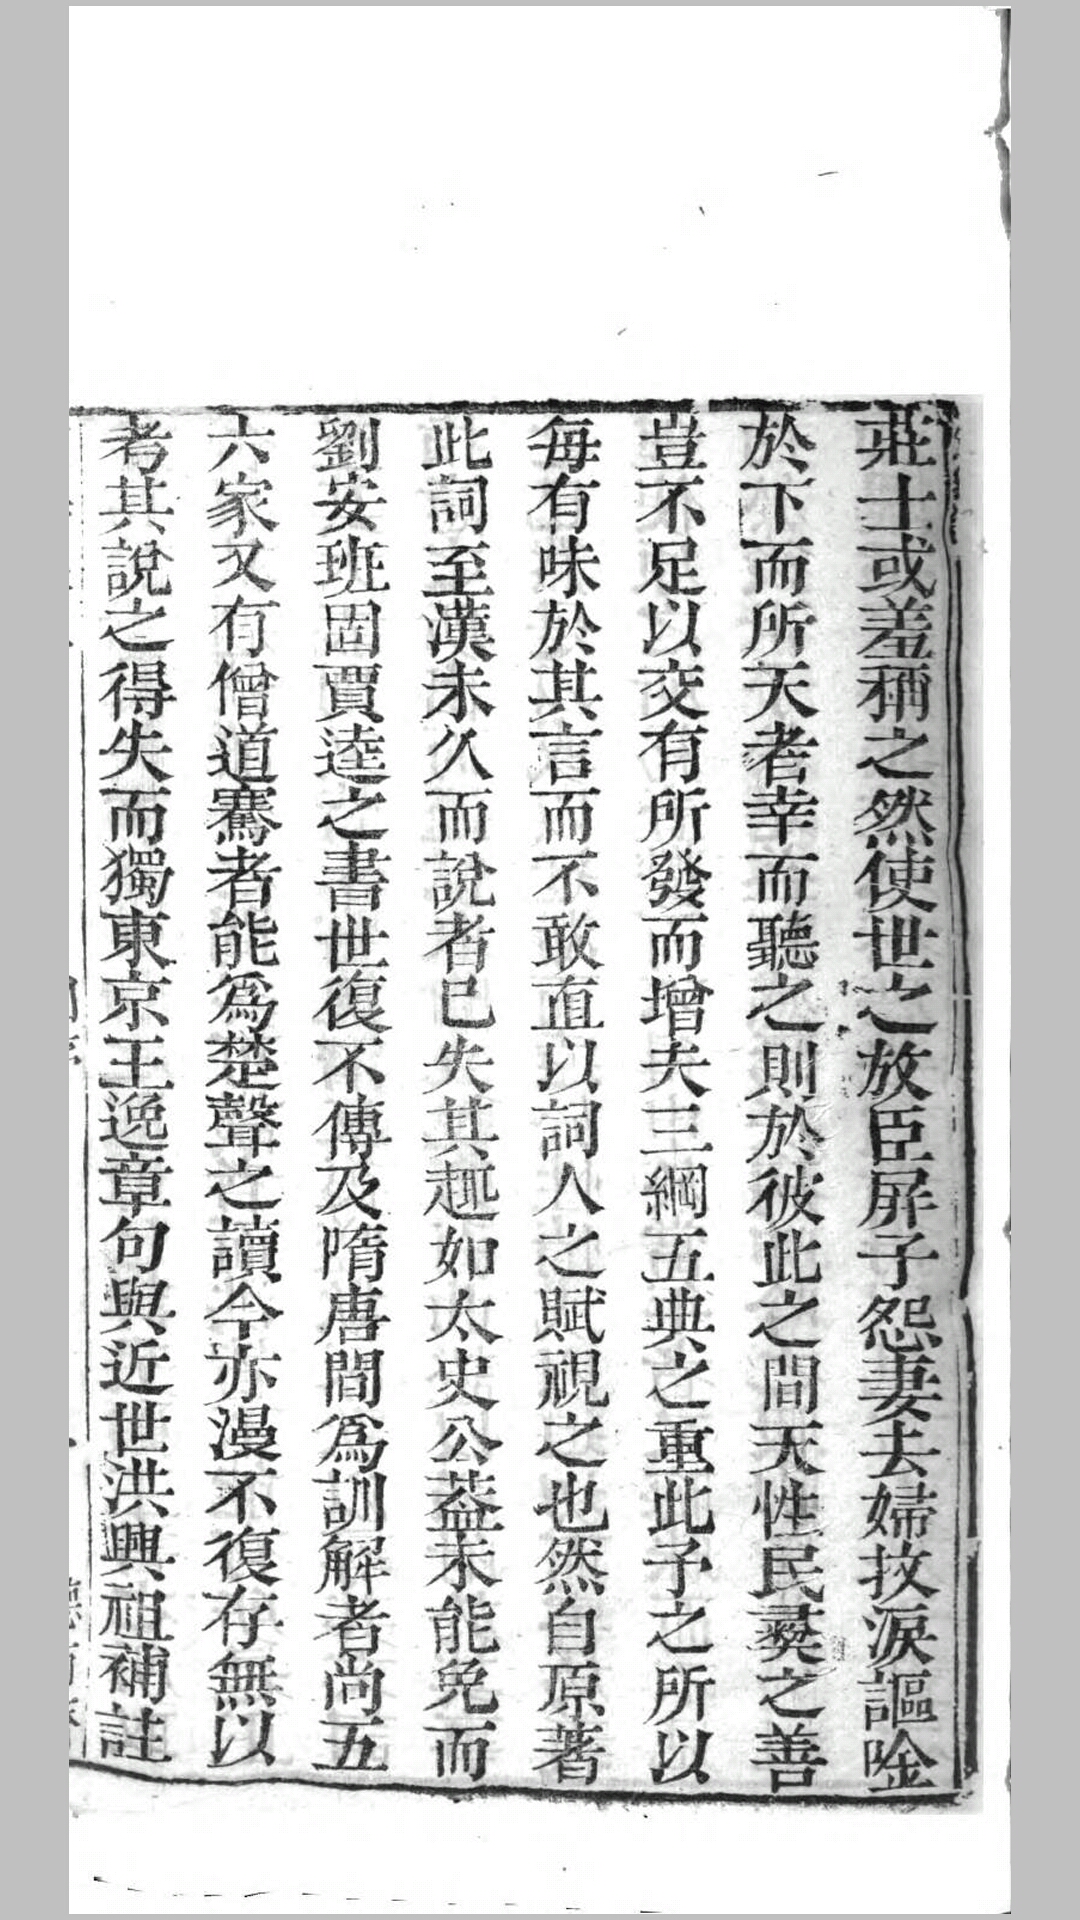 莊士或羞稱之然使世之放臣屏子怨妻去婦抆淚謳唫
於下而所天者幸而聽之則於彼此之間天性民彜之善
豈不足以交有所發而增夫三綱五典之重此予之所以
每有味於其言而不敢直以詞人之賦視之也然自原著
此詞至漢未久而說者已失其趣如太史公葢未能免而
劉安班固賈逵之書世復不傳及隋唐間爲訓解者尚五
六家又有僧道騫者能爲楚聲之讀今亦漫不復存無以
考其說之得失而獨東京王逸章句與近世洪興祖補註